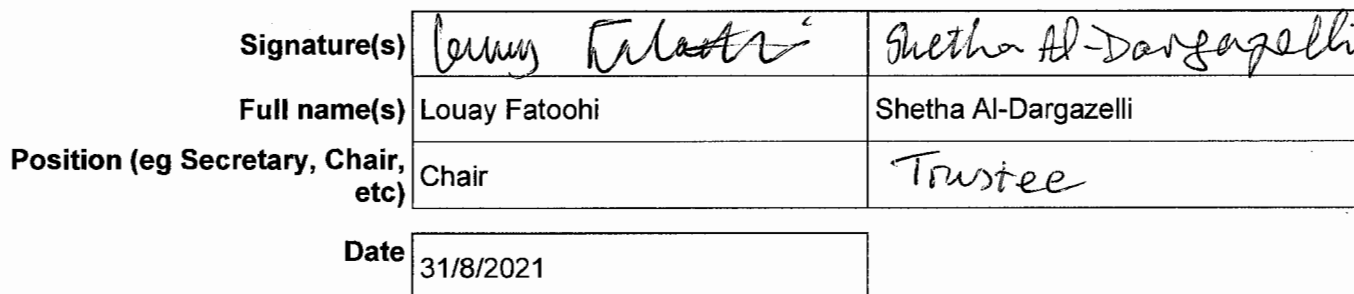 Signature(s) Louay Fatoohi Shetha Al-Dargazelli
Full name(s) Louay Fatoohi Shetha Al-Dargazelli
Position (eg Secretary, Chair, etc) Chair Trustee
Date 31/8/2021